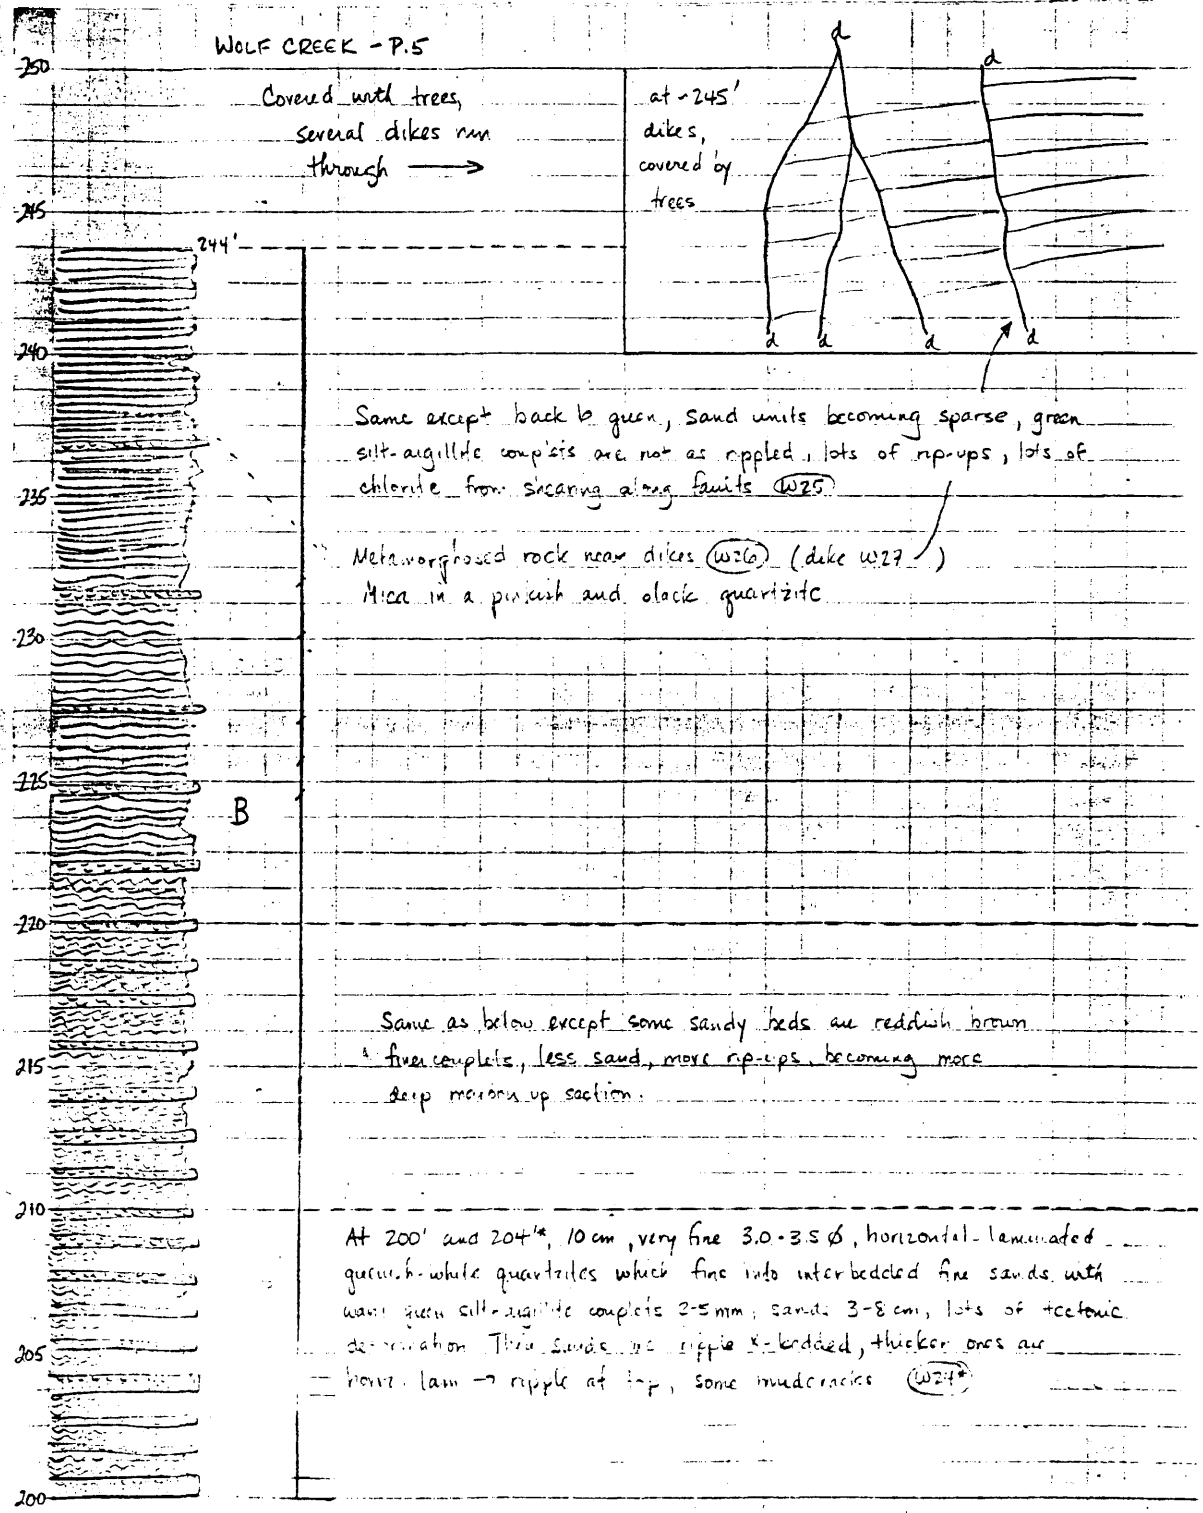 WOLF CREEK - P.5
250
Covered with trees,
several dikes run
through
at ~245'
dikes,
covered by
trees
d
d
d
d
d
d
245
244'
240
Same except back to green, sand units becoming sparse, green
silt-argillite couplets are not as rippled, lots of rip-ups, lots of
chlorite from shearing along faults W25
235
Metamorphosed rock near dikes W26 (dike W27)
Mica in a pinkish and black quartzite
230
225
B
220
Same as below except some sandy beds are reddish brown
finer couplets, less sand, more rip-ups, becoming more
deep maroon up section.
215
210
At 200' and 204'*, 10 cm, very fine 3.0-3.5 ϕ, horizontal-laminated
greenish-white quartzites which fine into interbedded fine sands with
green silt-argillite couplets 2-5mm, sands 3-8 cm, lots of tectonic
deformation Thin sands are ripple x-bedded, thicker ones are
205
horiz. lam → ripple at top, some mudcracks W24*
200